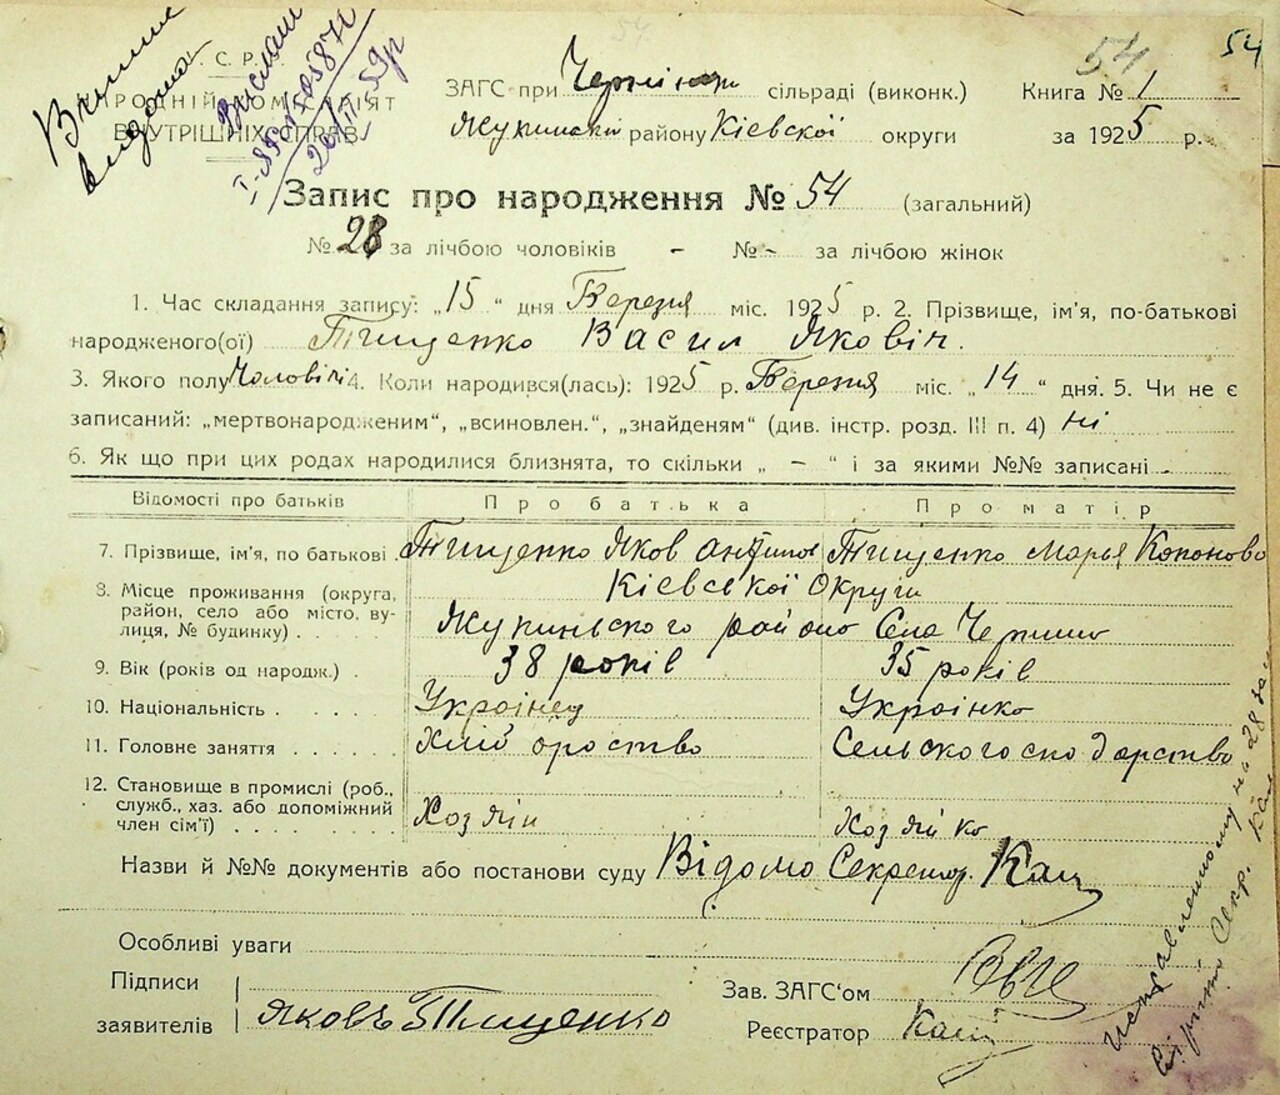 54 54
У. С. Р. Р. Виписка
НАРОДНІЙ КОМІСАРІЯТ видана
ВНУТРІШНІХ СПРАВ.
ЗАГС при сільраді (виконк.) Книга № 1
району Кієвскої округи за 1925 р.
Запис про народження № 54 (загальний)
№ 28 за лічбою чоловіків - № - за лічбою жінок
1. Час складання запису: „15“ дня Березня міс. 1925 р. 2. Прізвище, ім'я, по-батькові
народженого(ої) Тищенко Васил Яковіч.
3. Якого полу Чоловічі 4. Коли народився(лась): 1925 р. Березня міс. „14“ дня. 5. Чи не є
записаний: „мертвонародженим“, „всиновлен.“, „знайденям“ (див. інстр. розд. III п. 4) ні
6. Як що при цих родах народилися близнята, то скільки „ – “ і за якими №№ записані -
Відомості про батьків Про батька Про матір
7. Прізвище, ім'я, по батькові Тищенко Яков Тищенко Марья
8. Місце проживання (округа, Кієвської Округи
район, село або місто, ву-
лиця, № будинку) района Села
9. Вік (років од народж.) 38 років 35 років
10. Національність Украінец Украінка
11. Головне заняття
12. Становище в промислі (роб.,
служб., хаз. або допоміжний
член сім'ї) Хозяін Хозяйка
Назви й №№ документів або постанови суду Відомо Секретар. Кащ
Особливі уваги
Підписи
заявителів Яковъ Тищенко
Зав. ЗАГС'ом
Реєстратор Кащ